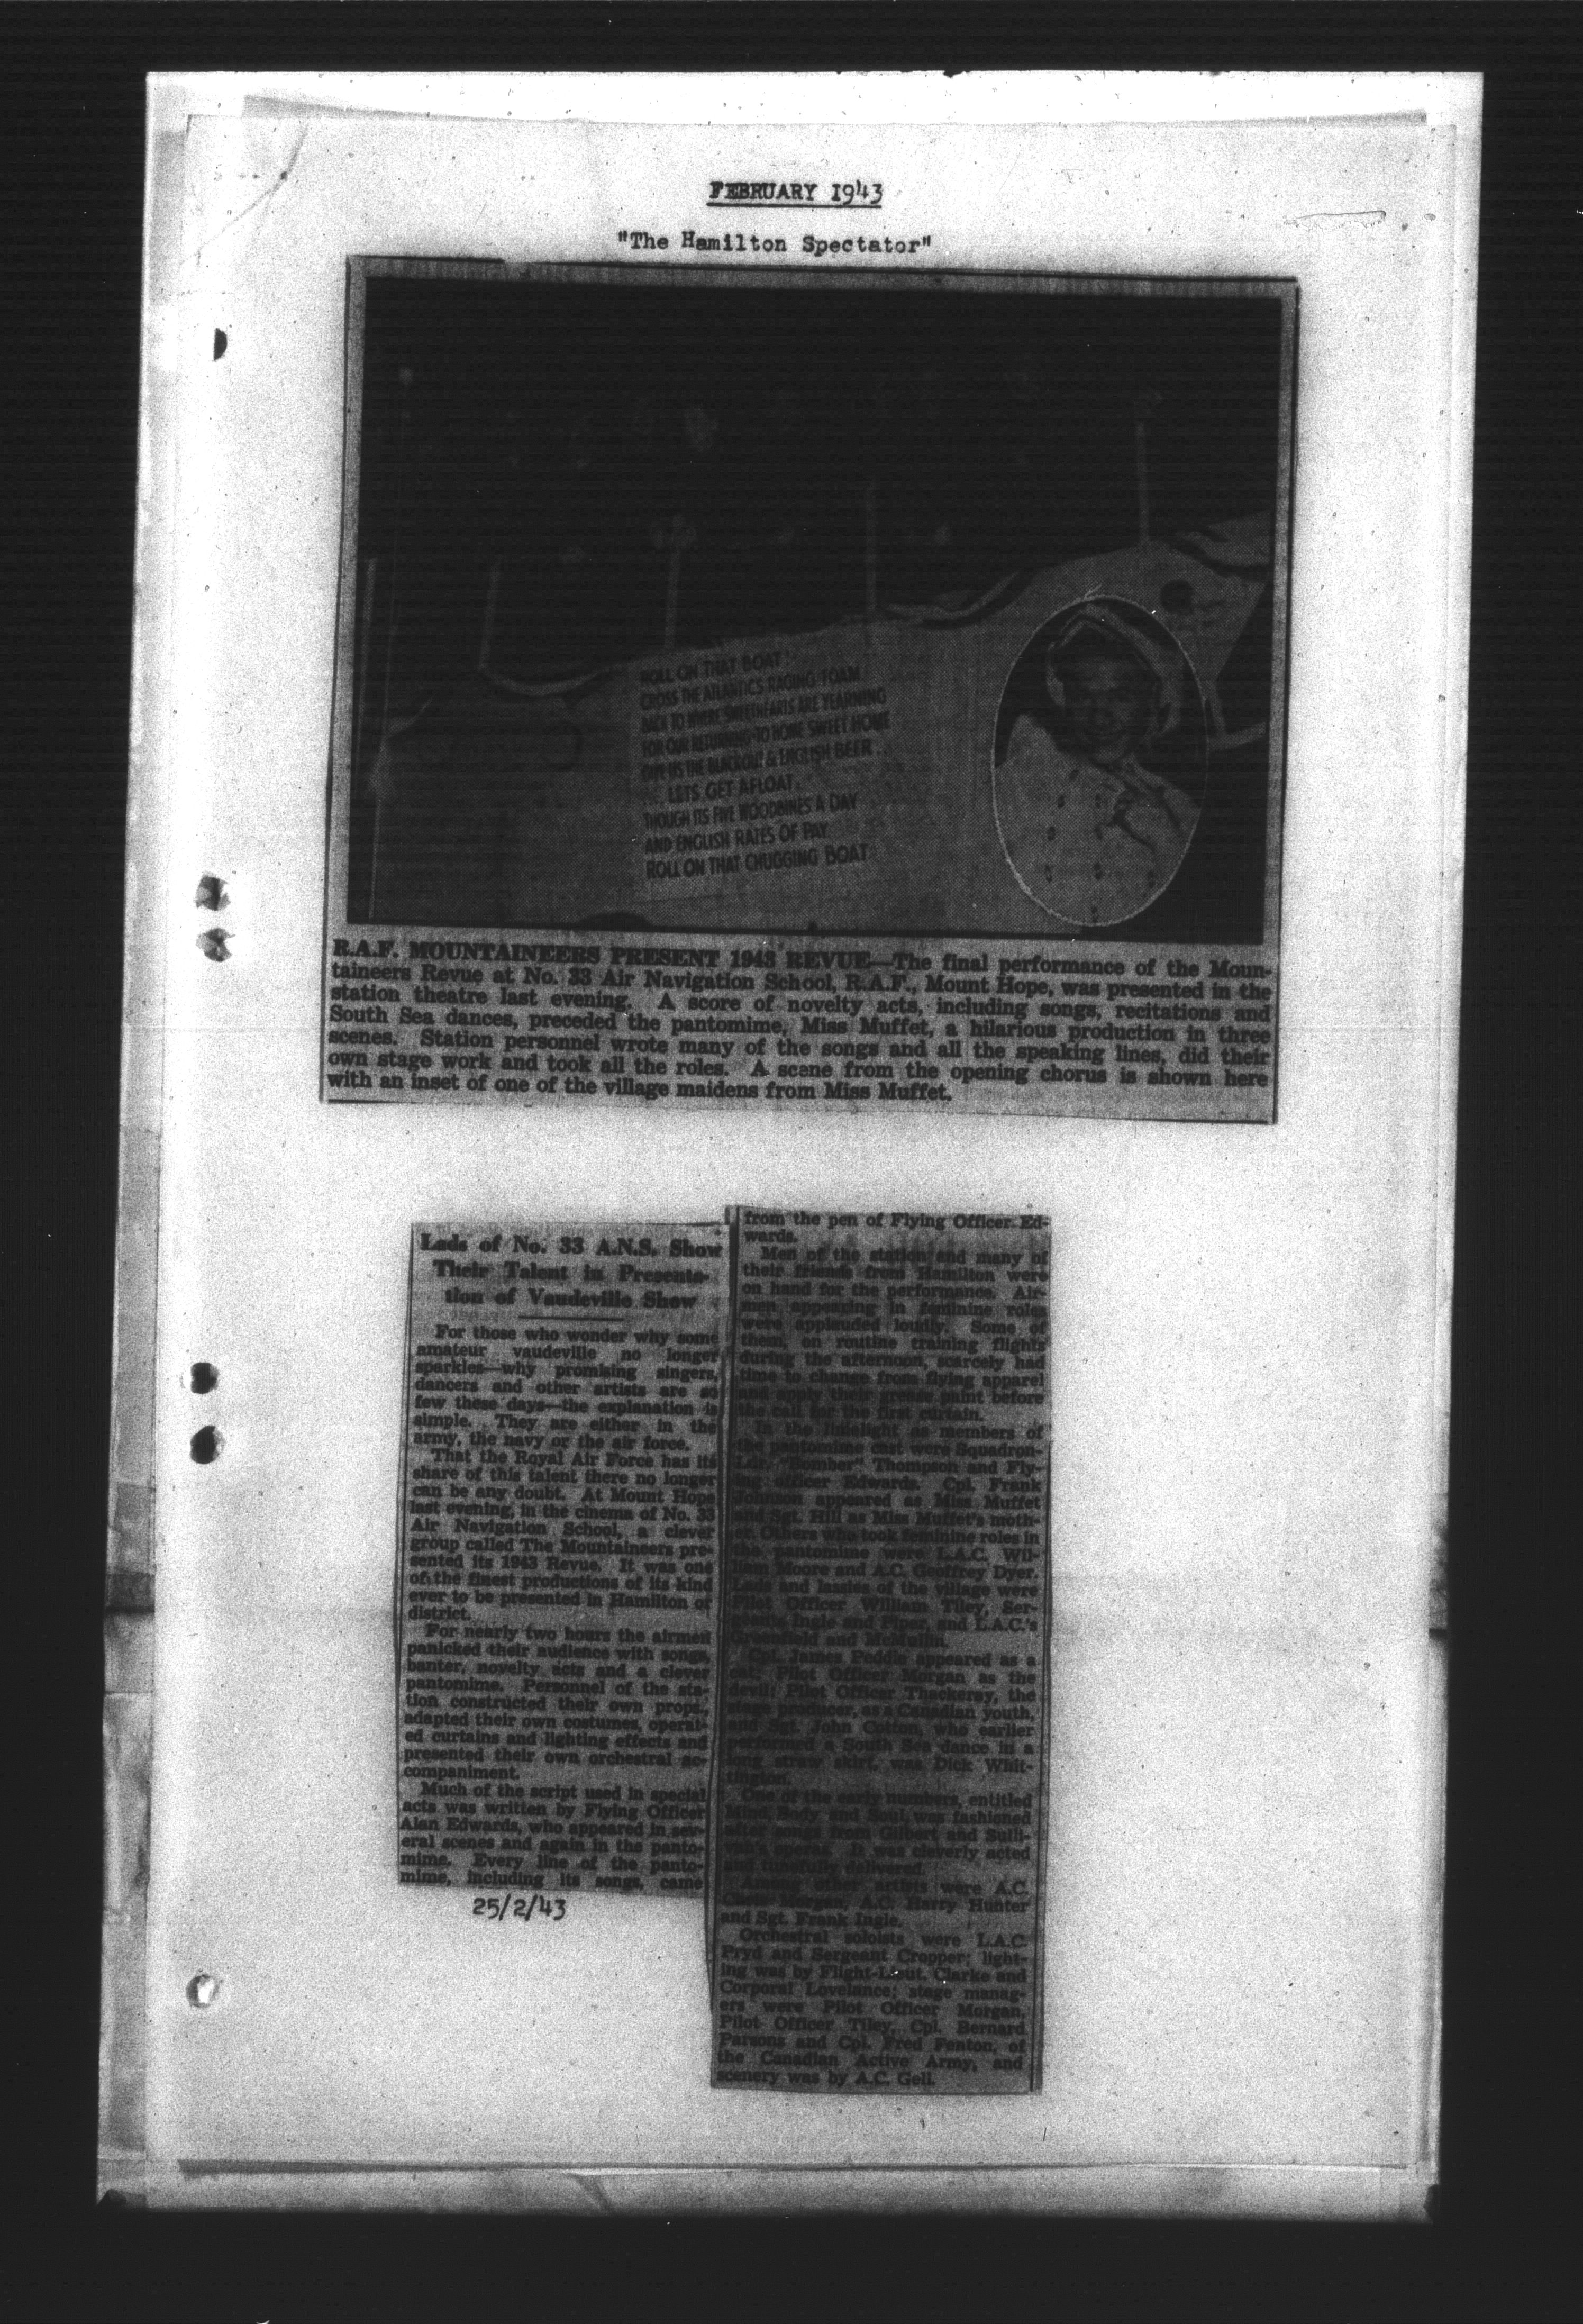 FEBRUARY 1943
"The Hamilton Spectator"
ROLL ON THAT BOAT!
CROSS THE ATLANTIC'S RAGING FOAM
BACK TO WHERE SWEETHEARTS ARE YEARNING
FOR OUR RETURNING-TO HOME SWEET HOME
GIVE US THE BLACKOUT & ENGLISH BEER
LETS GET AFLOAT
THOUGH ITS FIVE WOODBINES A DAY
AND ENGLISH RATES OF PAY
ROLL ON THAT CHUGGING BOAT
R.A.F. MOUNTAINEERS PRESENT 1943 REVUE—The final performance of the Moun-
taineers Revue at No. 33 Air Navigation School, R.A.F., Mount Hope, was presented in the
station theatre last evening. A score of novelty acts, including songs, recitations and
South Sea dances, preceded the pantomime, Miss Muffet, a hilarious production in three
scenes. Station personnel wrote many of the songs and all the speaking lines, did their
own stage work and took all the roles. A scene from the opening chorus is shown here
with an inset of one of the village maidens from Miss Muffet.
Lads of No. 33 A.N.S. Show
Their Talent in Presenta-
tion of Vaudeville Show
For those who wonder why some
amateur vaudeville no longer
sparkles—why promising singers,
dancers and other artists are so
few these days—the explanation is
simple. They are either in the
army, the navy or the air force.
That the Royal Air Force has its
share of this talent there no longer
can be any doubt. At Mount Hope
last evening, in the cinema of No. 33
Air Navigation School, a clever
group called The Mountaineers pre-
sented its 1943 Revue. It was one
of the finest productions of its kind
ever to be presented in Hamilton or
district.
For nearly two hours the airmen
panicked their audience with songs,
banter, novelty acts and a clever
pantomime. Personnel of the sta-
tion constructed their own props,
adapted their own costumes, operat-
ed curtains and lighting effects and
presented their own orchestral ac-
companiment.
Much of the script used in special
acts was written by Flying Officer
Alan Edwards, who appeared in sev-
eral scenes and again in the panto-
mime. Every line of the panto-
mime, including its songs, came
25/2/43
from the pen of Flying Officer Ed-
wards.
Men of the station and many of
their friends from Hamilton were
on hand for the performance. Air-
men appearing in feminine roles
were applauded loudly. Some of
them, on routine training flights
during the afternoon, scarcely had
time to change from flying apparel
and apply their grease paint before
the call for the first curtain.
In the limelight as members of
the pantomime cast were Squadron-
Ldr. "Bomber" Thompson and Fly-
ing officer Edwards. Cpl. Frank
Johnson appeared as Miss Muffet
and Sgt. Hill as Miss Muffet's moth-
er. Others who took feminine roles in
the pantomime were L.A.C. Wil-
liam Moore and A.C. Geoffrey Dyer.
Lads and lassies of the village were
Pilot Officer William Tiley, Ser-
geants Ingle and Piper, and L.A.C.'s
Greenfield and McMullin.
Cpl. James Peddie appeared as a
cat; Pilot Officer Morgan as the
devil; Pilot Officer Thackeray, the
stage producer, as a Canadian youth,
and Sgt. John Cotton, who earlier
performed a South Sea dance in a
long straw skirt, was Dick Whit-
tington.
One of the early numbers, entitled
Mind, Body and Soul, was fashioned
after songs from Gilbert and Sulli-
van's operas. It was cleverly acted
and tunefully delivered.
Among other artists were A.C.
Morgan, A.C. Harry Hunter
and Sgt. Frank Ingle.
Orchestral soloists were L.A.C.
Pryd and Sergeant Cropper; light-
ing was by Flight-Lieut. Clarke and
Corporal Lovelance; stage manag-
ers were Pilot Officer Morgan,
Pilot Officer Tiley, Cpl. Bernard
Parsons and Cpl. Fred Fenton, of
the Canadian Active Army, and
scenery was by A.C. Gell.